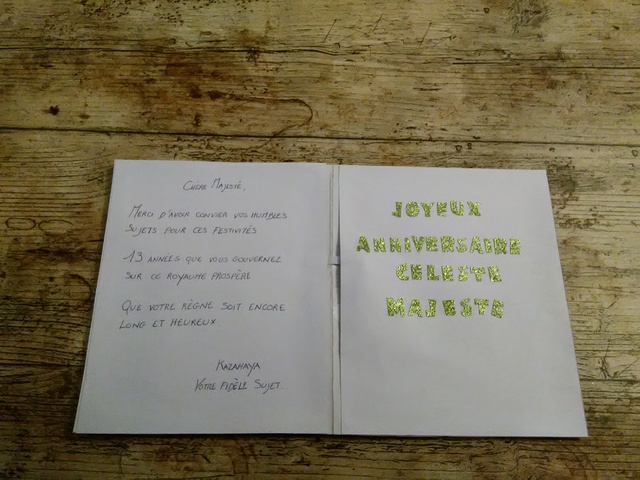 Chère Majesté,
Merci d'avoir convier vos humbles
sujets pour ces festivités
13 années que vous gouvernez
sur ce royaume prospère
Que votre règne soit encore
long et heureux
Kazahaya
Votre fidèle sujet.
JOYEUX
ANNIVERSAIRE
CELESTE
MAJESTE